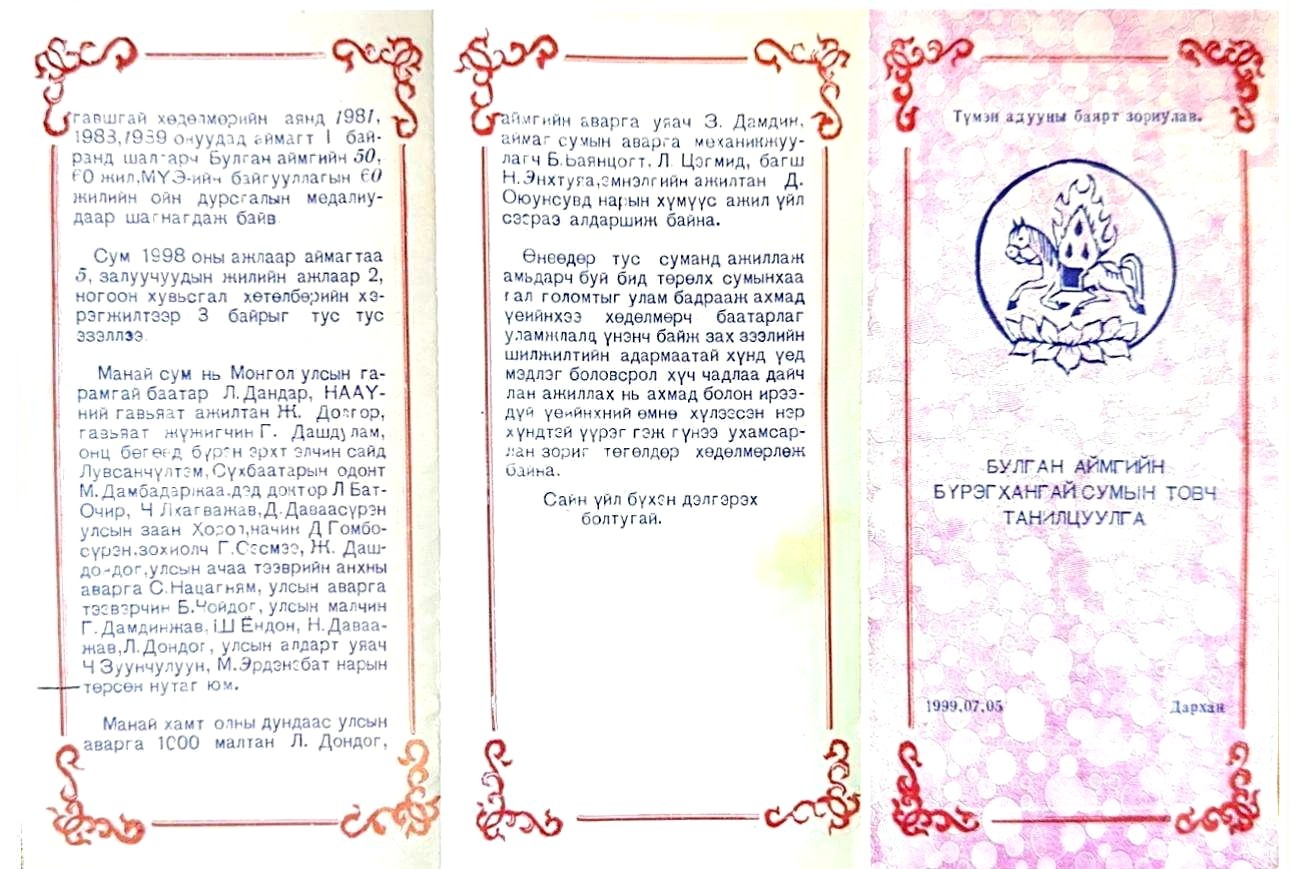 гавшгай хөдөлмөрийн аянд 1981,
1983,1989 онуудад аймагт 1 бай-
ранд шалгарч Булган аймгийн 50,
60 жил,МҮЭ-ийн байгууллагын 60
жилийн ойн дурсгалын медалиу-
даар шагнагдаж байв
Сум 1998 оны ажлаар аймагтаа
5, залуучуудын жилийн ажлаар 2,
ногоон хувьсгал хөтөлбөрийн хэ-
рэгжилтээр 3 байрыг тус тус
эзэллээ
Манай сум нь Монгол улсын га-
рамгай баатар Л. Дандар, НААҮ-
ний гавьяат ажилтан Ж. Долгор,
гавьяат жүжигчин Г. Дашдулам,
онц бөгөөд бүрэн эрхт элчин сайд
Лувсанчүлтэм, Сүхбаатарын одонт
М. Дамбадаржаа.дэд доктор Л Бат-
Очир, Ч Лхагважав, Д. Даваасүрэн
улсын заан Хорол,начин Д Гомбо-
сүрэн.зохиолч Г. Сэсмээ, Ж. Даш-
дондог,улсын ачаа тээврийн анхны
аварга С. Нацагням, улсын аварга
тээвэрчин Б. Чойдог, улсын малчин
Г. Дамдинжав, Ш Ёндон, Н. Даваа-
жав,Л. Дондог, улсын алдарт уяач
Ч Зуунчулуун, М. Эрдэнэбат нарын
төрсөн нутаг юм.
Манай хамт олны дундаас улсын
аварга 1000 малтан Л. Дондог,
аймгийн аварга уяач З. Дамдин,
аймаг сумын аварга механикжуу-
лагч Б. Баянцогт, Л. Цэгмид, багш
Н. Энхтуяа,эмнэлгийн ажилтан Д.
Оюунсувд нарын хүмүүс ажил үйл
сэсрээ алдаршиж байна.
Өнөөдөр тус суманд ажиллаж
амьдарч буй бид төрөлх сумынхаа
гал голомтыг улам бадрааж ахмад
үеийнхээ хөдөлмөрч баатарлаг
уламжлалд үнэнч байж зах зээлийн
шилжилтийн адармаатай хүнд үед
мэдлэг боловсрол хүч чадлаа дайч
лан ажиллах нь ахмад болон ирээ-
дүй үеийнхний өмнө хүлээсэн нэр
хүндтэй үүрэг гэж гүнээ ухамсар-
лан зориг төгөлдөр хөдөлмөрлөж
байна.
Сайн үйл бүхэн дэлгэрэх
болтугай.
Түмэн адууны баярт зориулав.
БУЛГАН АЙМГИЙН
БҮРЭГХАНГАЙ СУМЫН ТОВЧ
ТАНИЛЦУУЛГА
1999.07.05 Дархан